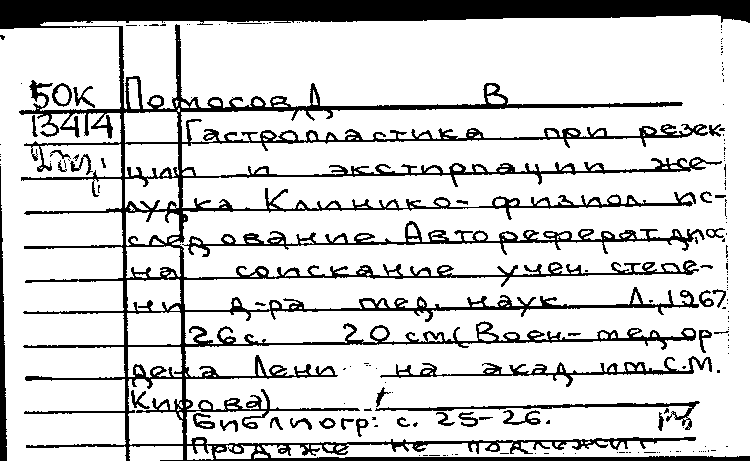 50К Помосов, Д В
13414 Гастропластика при резек-
2 экз. ции и экстирпации же-
лудка. Клинико-физиол. ис-
следование. Автореферат дисс
на соискание учен. степе-
ни д-ра мед. наук. Л., 1967
26 с. 20 см. (Воен-мед. ор-
дена Лени на акад. им. С.М.
Кирова)
Библиогр: с. 25-26.
Продаже не подлежит